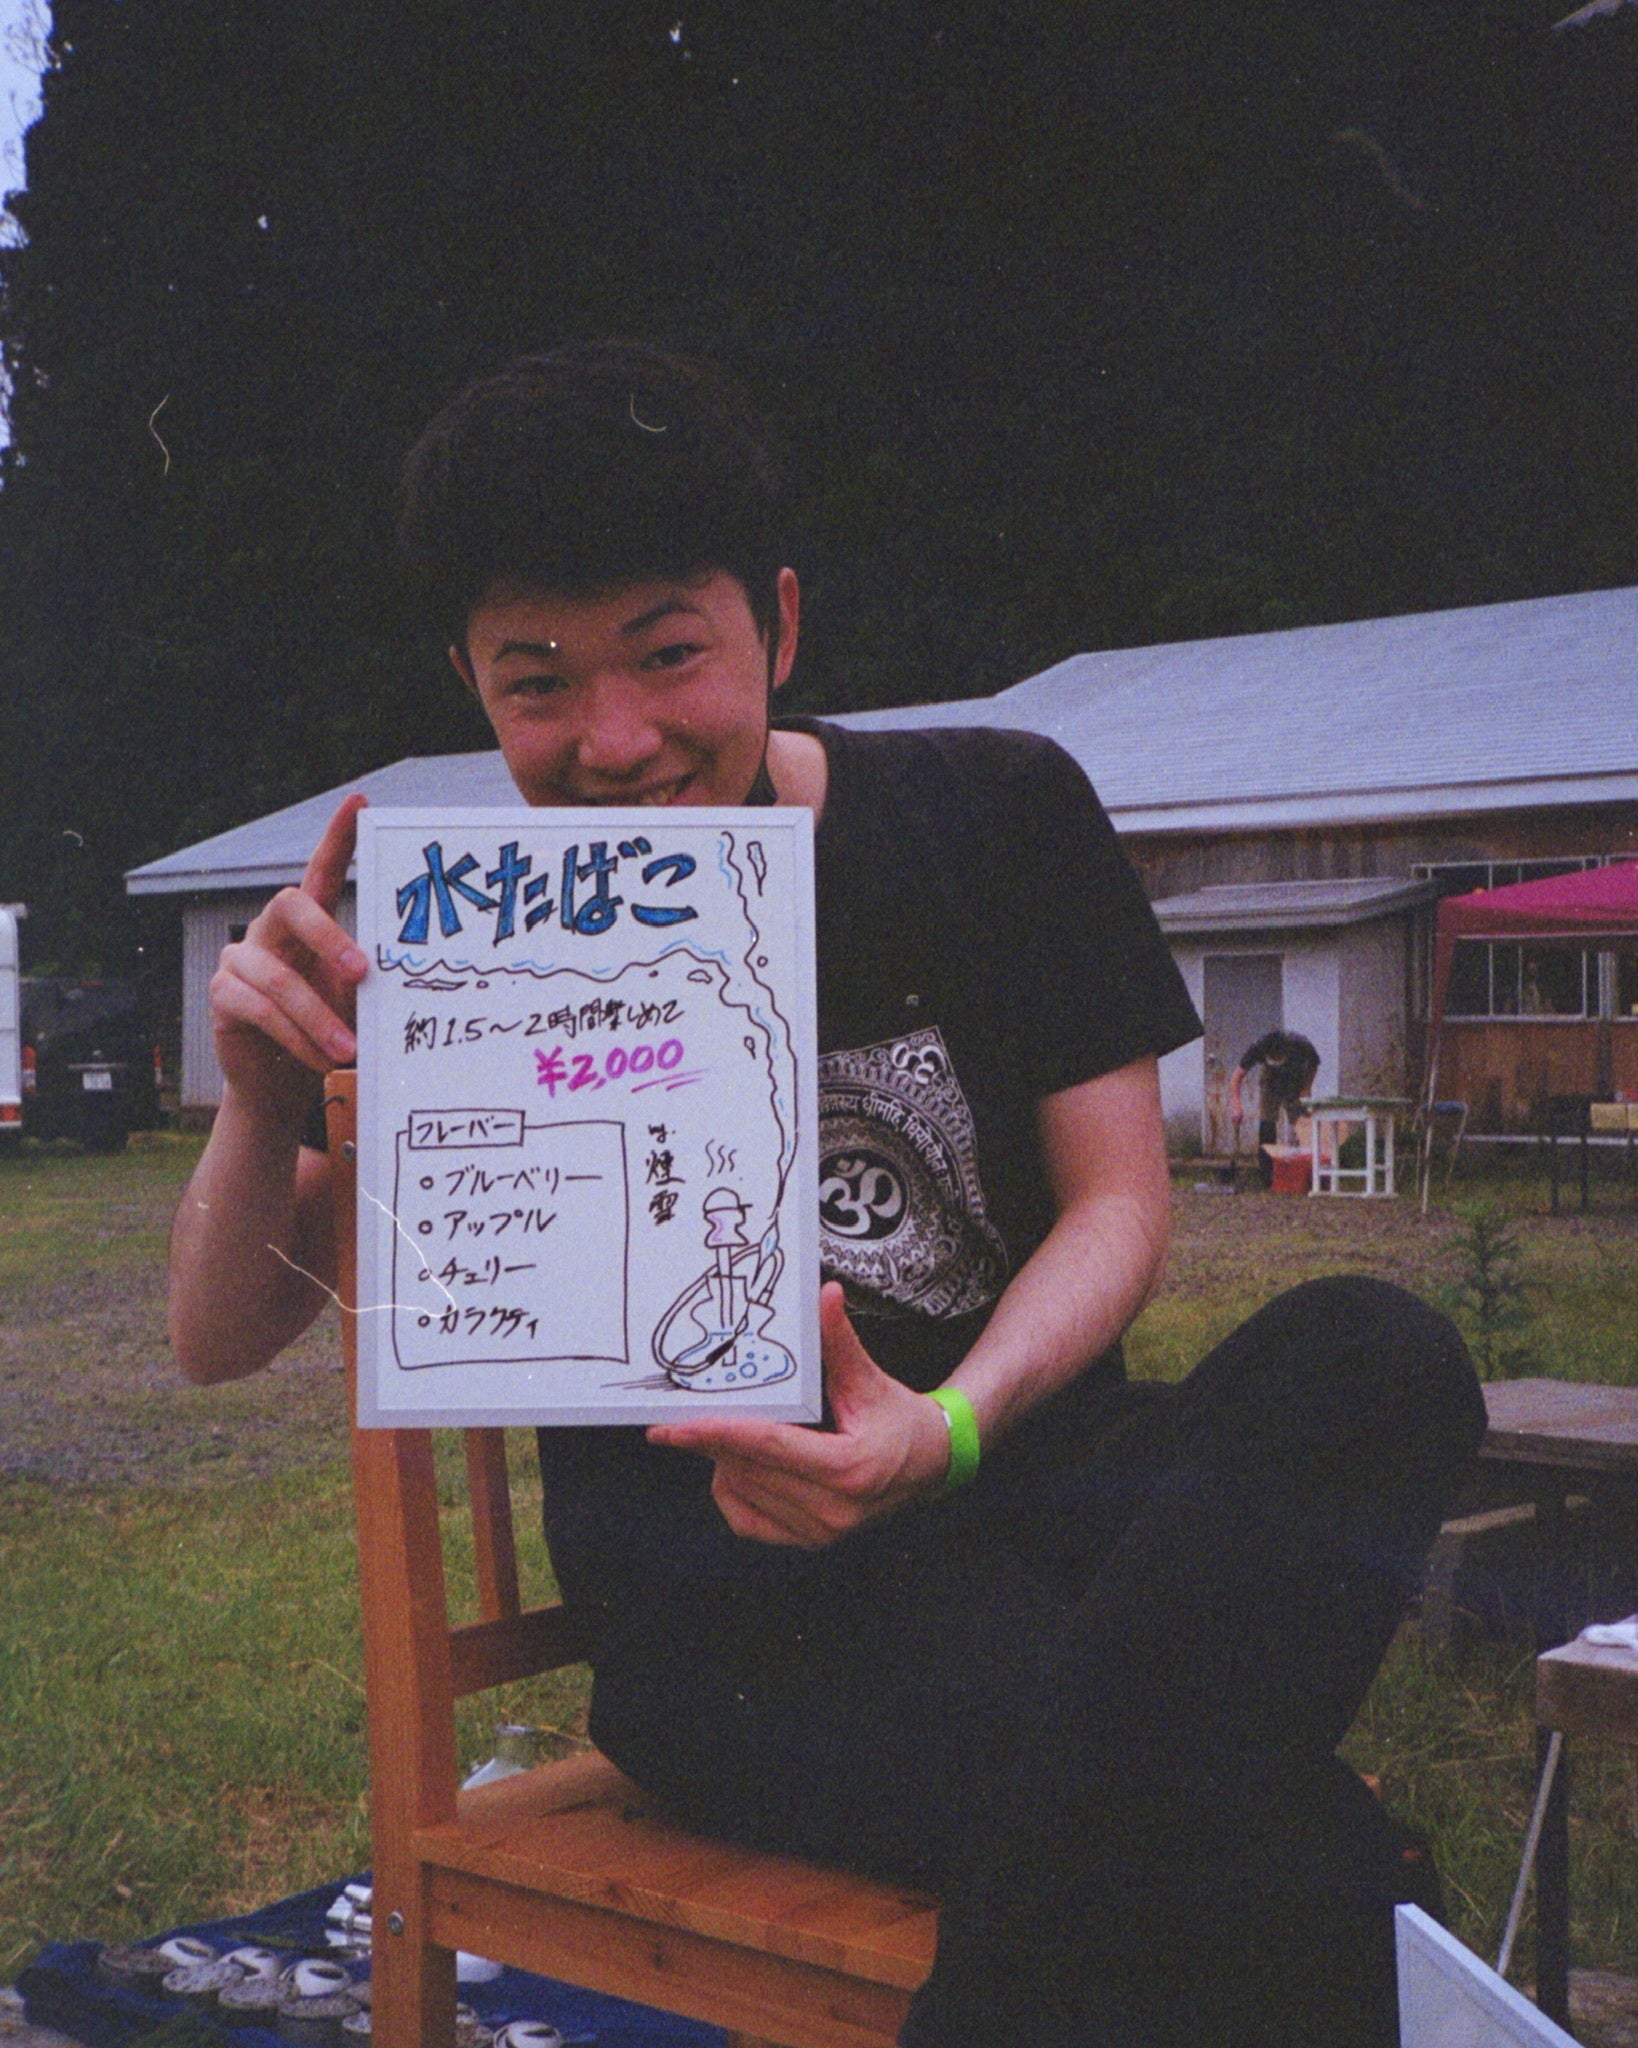 水たばこ
約1.5〜2時間楽しめて
¥2,000
フレーバー
ブルーベリー
アップル
チェリー
カラクティ
by. 煙雲
धीमहि धियो
ॐ